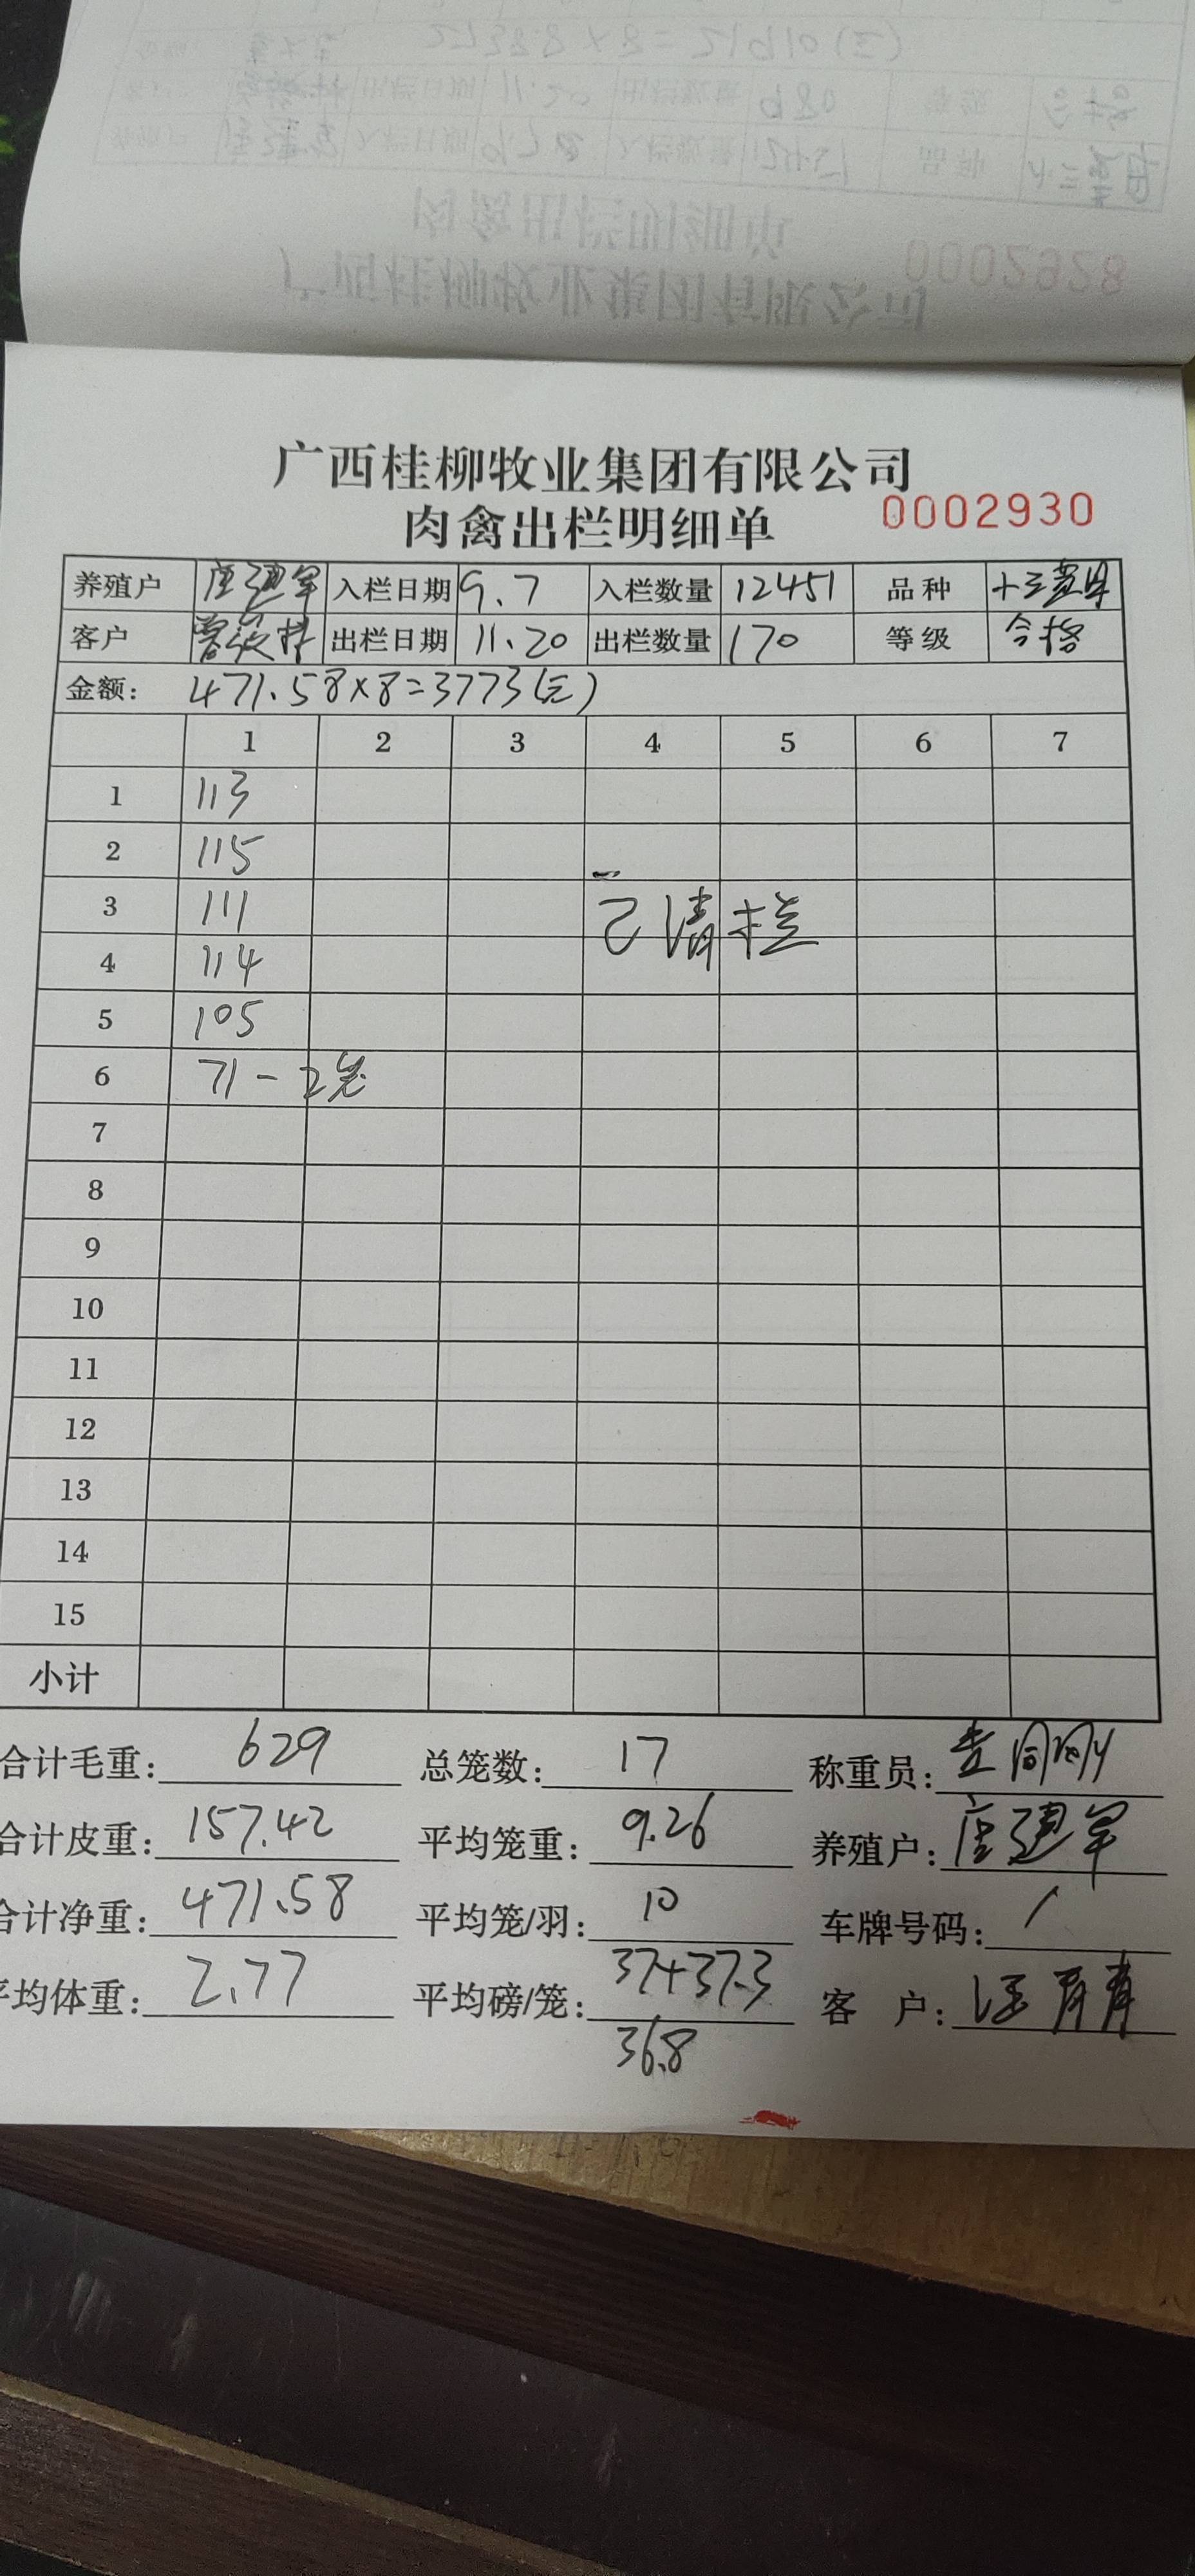 广西桂柳牧业集团有限公司
肉禽出栏明细单 0002930
养殖户 唐建军 入栏日期 9.7 入栏数量 12451 品种
客户 出栏日期 11.20 出栏数量 170 等级 合格
金额: 471.58×8=3773(元)
1 2 3 4 5 6 7
1 113
2 115
3 111 已清栏
4 114
5 105
6 71-2笼
7
8
9
10
11
12
13
14
15
小计
合计毛重: 629 总笼数: 17 称重员:
合计皮重: 157.42 平均笼重: 9.26 养殖户: 唐建军
合计净重: 471.58 平均笼/羽: 10 车牌号码: /
平均体重: 2.77 平均磅/笼: 37+37.3 客户: 汪青青
36.8